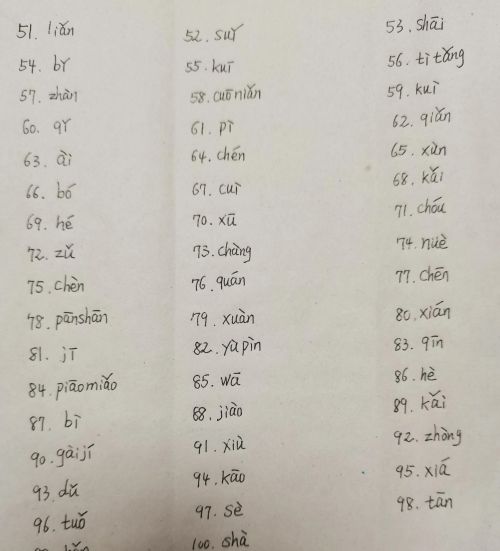 51. liǎn 52. suǐ 53. shāi
54. bǐ 55. kuī 56. tì tǎng
57. zhàn 58. cuō niǎn 59. kuì
60. qǐ 61. pì 62. qiǎn
63. ài 64. chén 65. xùn
66. bó 67. cuì 68. kǎi
69. hé 70. xū 71. chóu
72. zǔ 73. chàng 74. nüè
75. chèn 76. quán 77. chēn
78. pānshān 79. xuàn 80. xián
81. jī 82. yā pìn 83. qīn
84. piāomiǎo 85. wā 86. hè
87. bì 88. jiào 89. kǎi
90. gàijí 91. xiù 92. zhòng
93. dǔ 94. kāo 95. xiá
96. tuǒ 97. sè 98. tān
100. shà